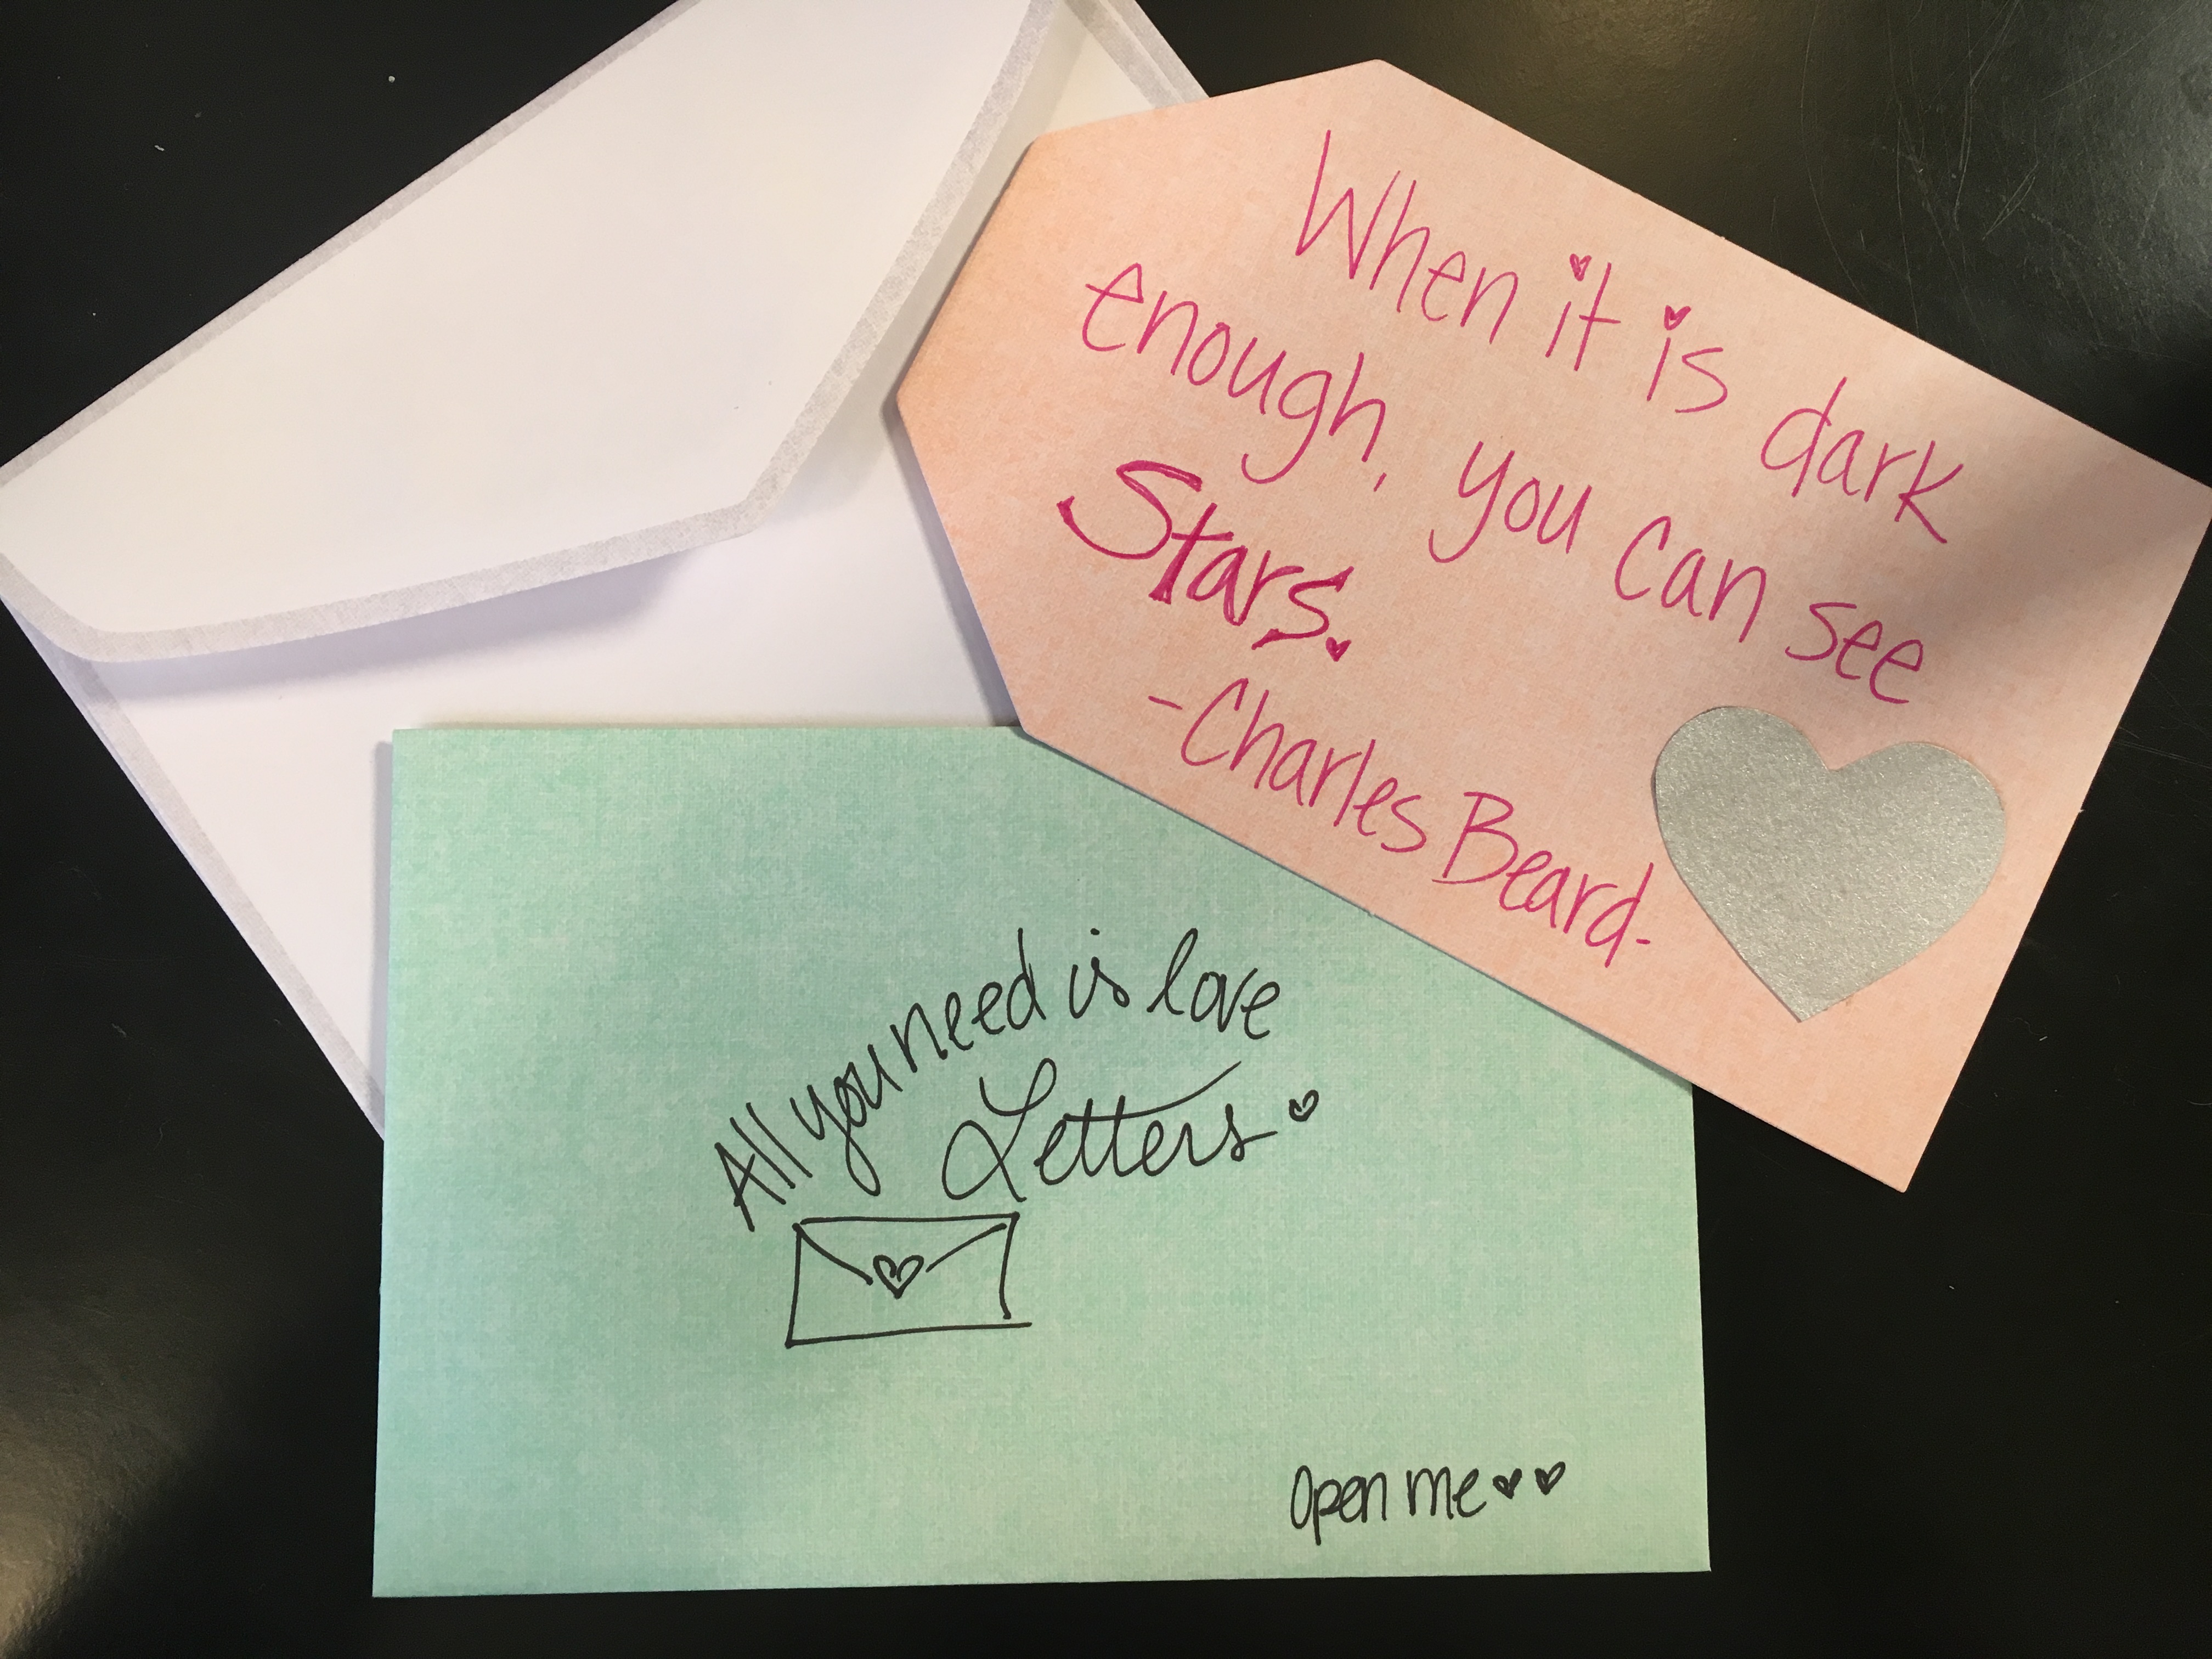 When it is dark
enough, you can see
Stars.
-Charles Beard-
All you need is love
Letters.
Open me